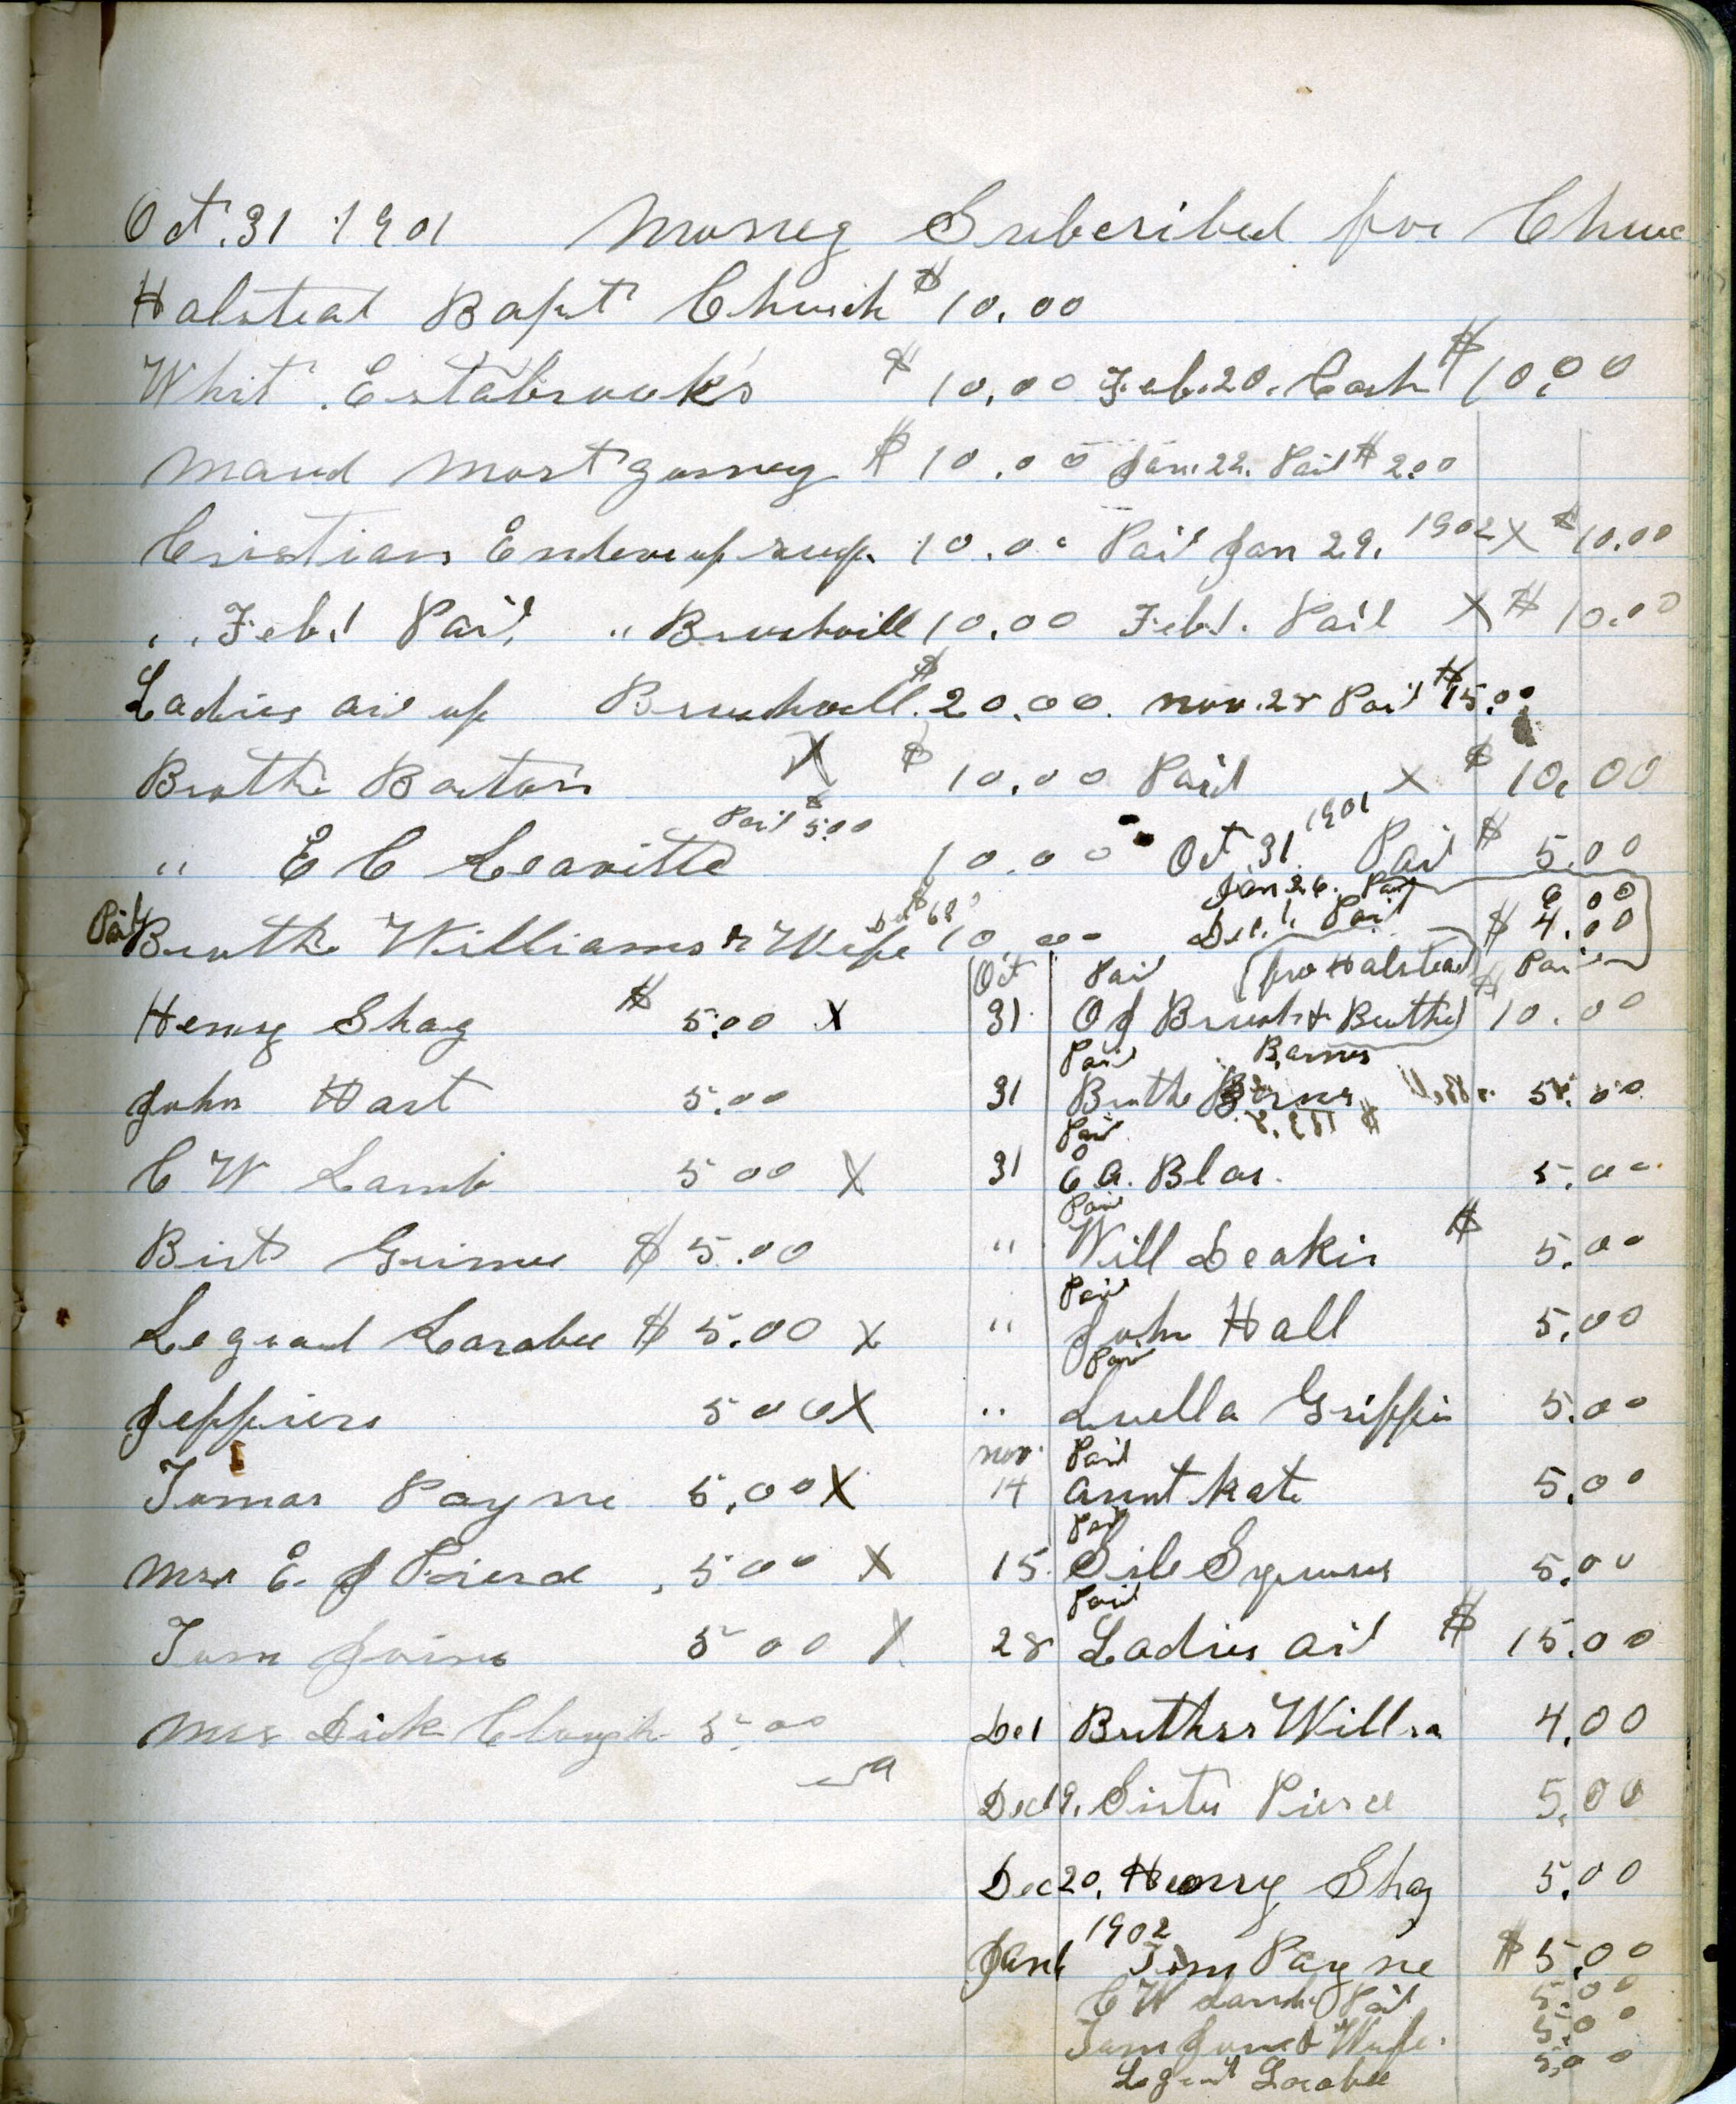 Oct. 31 1901 Money Subcribed for Chuc
Halstead Bapt Church $ 10.00
Whit. Estabrook's $ 10.00 Feb. 20. Cash $ 10.00
Maud Montgomey $ 10.00 Jan. 22. Paid $ 2.00
Cristian 10.00 Paid Jan 29. 1902 X $ 10.00
" " Feb. 1 Paid " 10.00 Feb. 1. Paid X $ 10.00
Ladies aid of $ 20.00. Nov. 28 Paid $ 15.00
Brothe Barton X $ 10.00 Paid X $ 10.00
Paid $ 5.00
" E C Leavitte 10.00 Oct 31. 1901 Paid $ 5.00
Jan 26. Paid 6.00
Paid Brothe Williams & Wife 10.00 Dec. 1. Paid $ 4.00
Oct Paid (for Halstead) Paid
Henry Shay $ 5.00 X 31 Of Brothe 10.00
Paid Barnes
John Hart 5.00 31 Brothe Barnes 5.00
Paid
C W Lamb 5 00 X 31 A. Blas. 5.00
Paid
Birt Grimes $ 5.00 " Will Deakin $ 5.00
Paid
Legrand Larabee $ 5.00 X " John Hall 5.00
Paid
Jeffiers 5 00 X " Luella Griffin 5.00
Nov. Paid
Tomas Payne 5.00 X 14 Aunt Kate 5.00
Paid
Mrs E. J Pierce 5 00 X 15. 5.00
Paid
Tom Joins 5 00 X 28 Ladies aid $ 15.00
Mrs Dick Clough 5.00 Dec 1 Brother Willia 4.00
Dec 19. Sister Pierce 5.00
Dec 20. Henry Shay 5.00
Jan 1902 Tom Payne $ 5.00
C W Lamb Paid 5.00
Tom & Wife. 5.00
Legrand Larabee 5.00